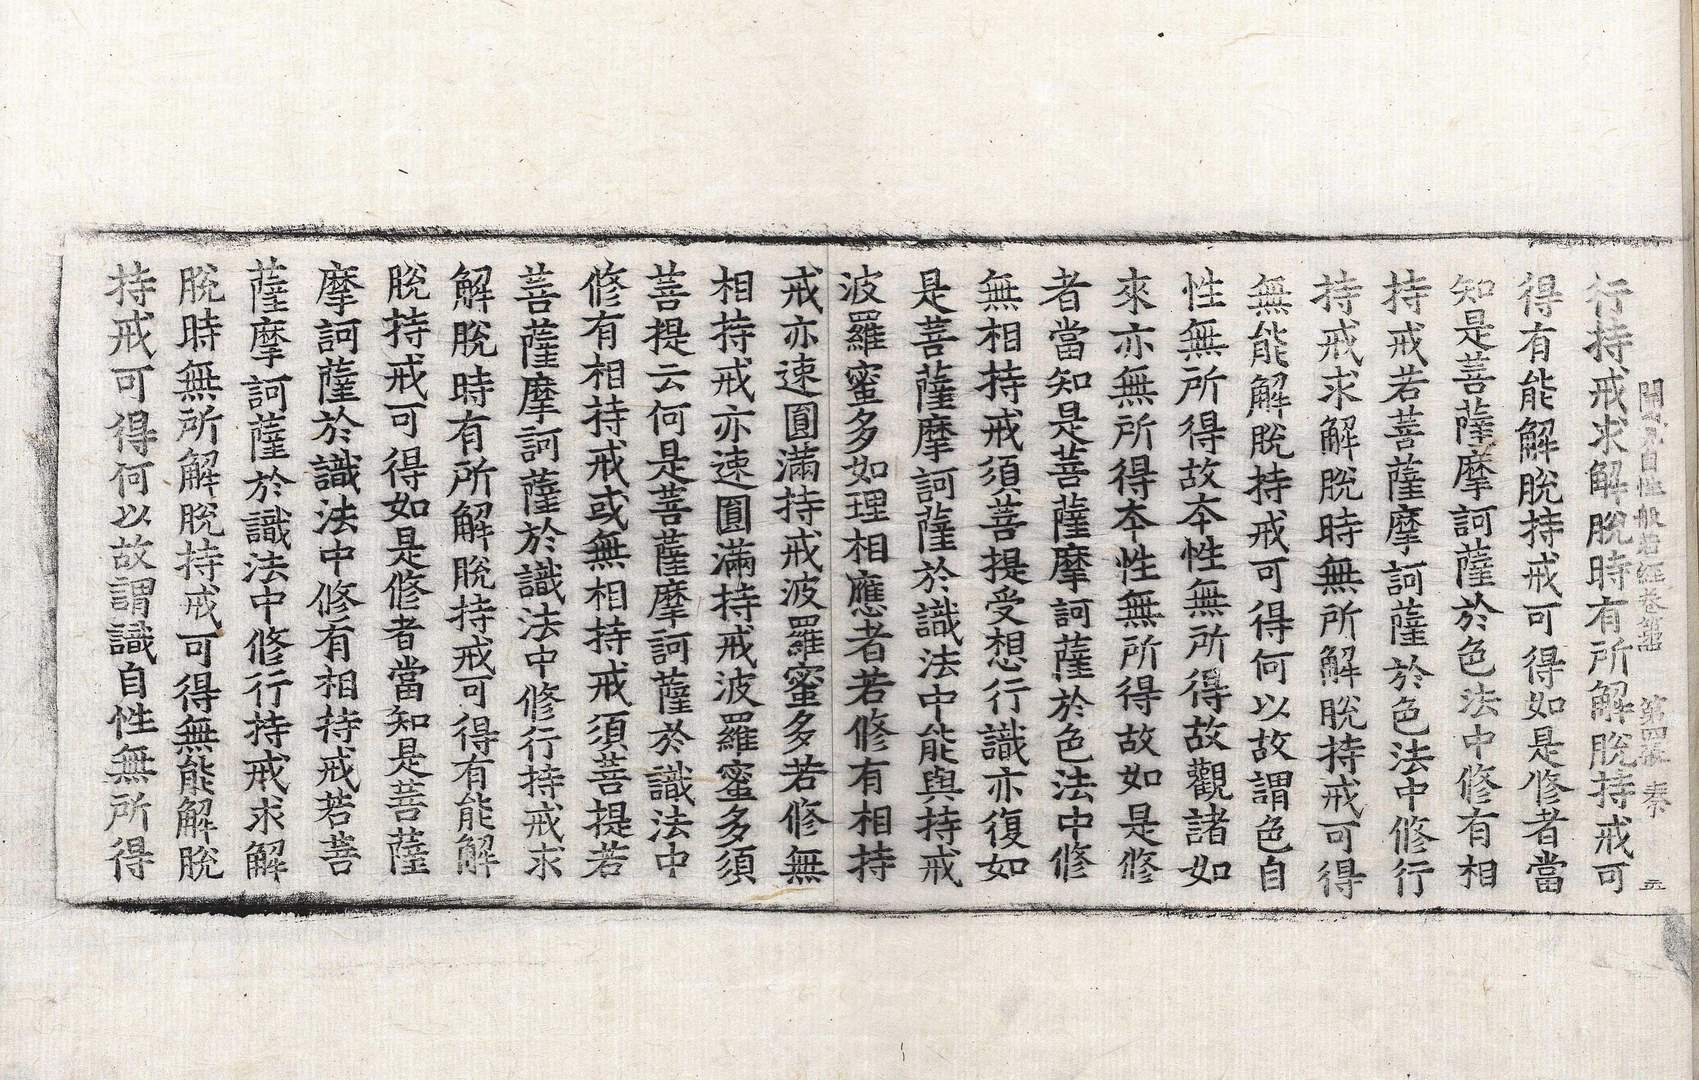 開覺自性般若經卷第 第四張 秦 五
行持戒求解脫時有所解脫持戒可
得有能解脫持戒可得如是修者當
知是菩薩摩訶薩於色法中修有相
持戒若菩薩摩訶薩於色法中修行
持戒求解脫時無所解脫持戒可得
無能解脫持戒可得何以故謂色自
性無所得故本性無所得故觀諸如
來亦無所得本性無所得故如是修
者當知是菩薩摩訶薩於色法中修
無相持戒須菩提受想行識亦復如
是菩薩摩訶薩於識法中能與持戒
波羅蜜多如理相應者若修有相持
戒亦速圓滿持戒波羅蜜多若修無
相持戒亦速圓滿持戒波羅蜜多須
菩提云何是菩薩摩訶薩於識法中
修有相持戒或無相持戒須菩提若
菩薩摩訶薩於識法中修行持戒求
解脫時有所解脫持戒可得有能解
脫持戒可得如是修者當知是菩薩
摩訶薩於識法中修有相持戒若菩
薩摩訶薩於識法中修行持戒求解
脫時無所解脫持戒可得無能解脫
持戒可得何以故謂識自性無所得